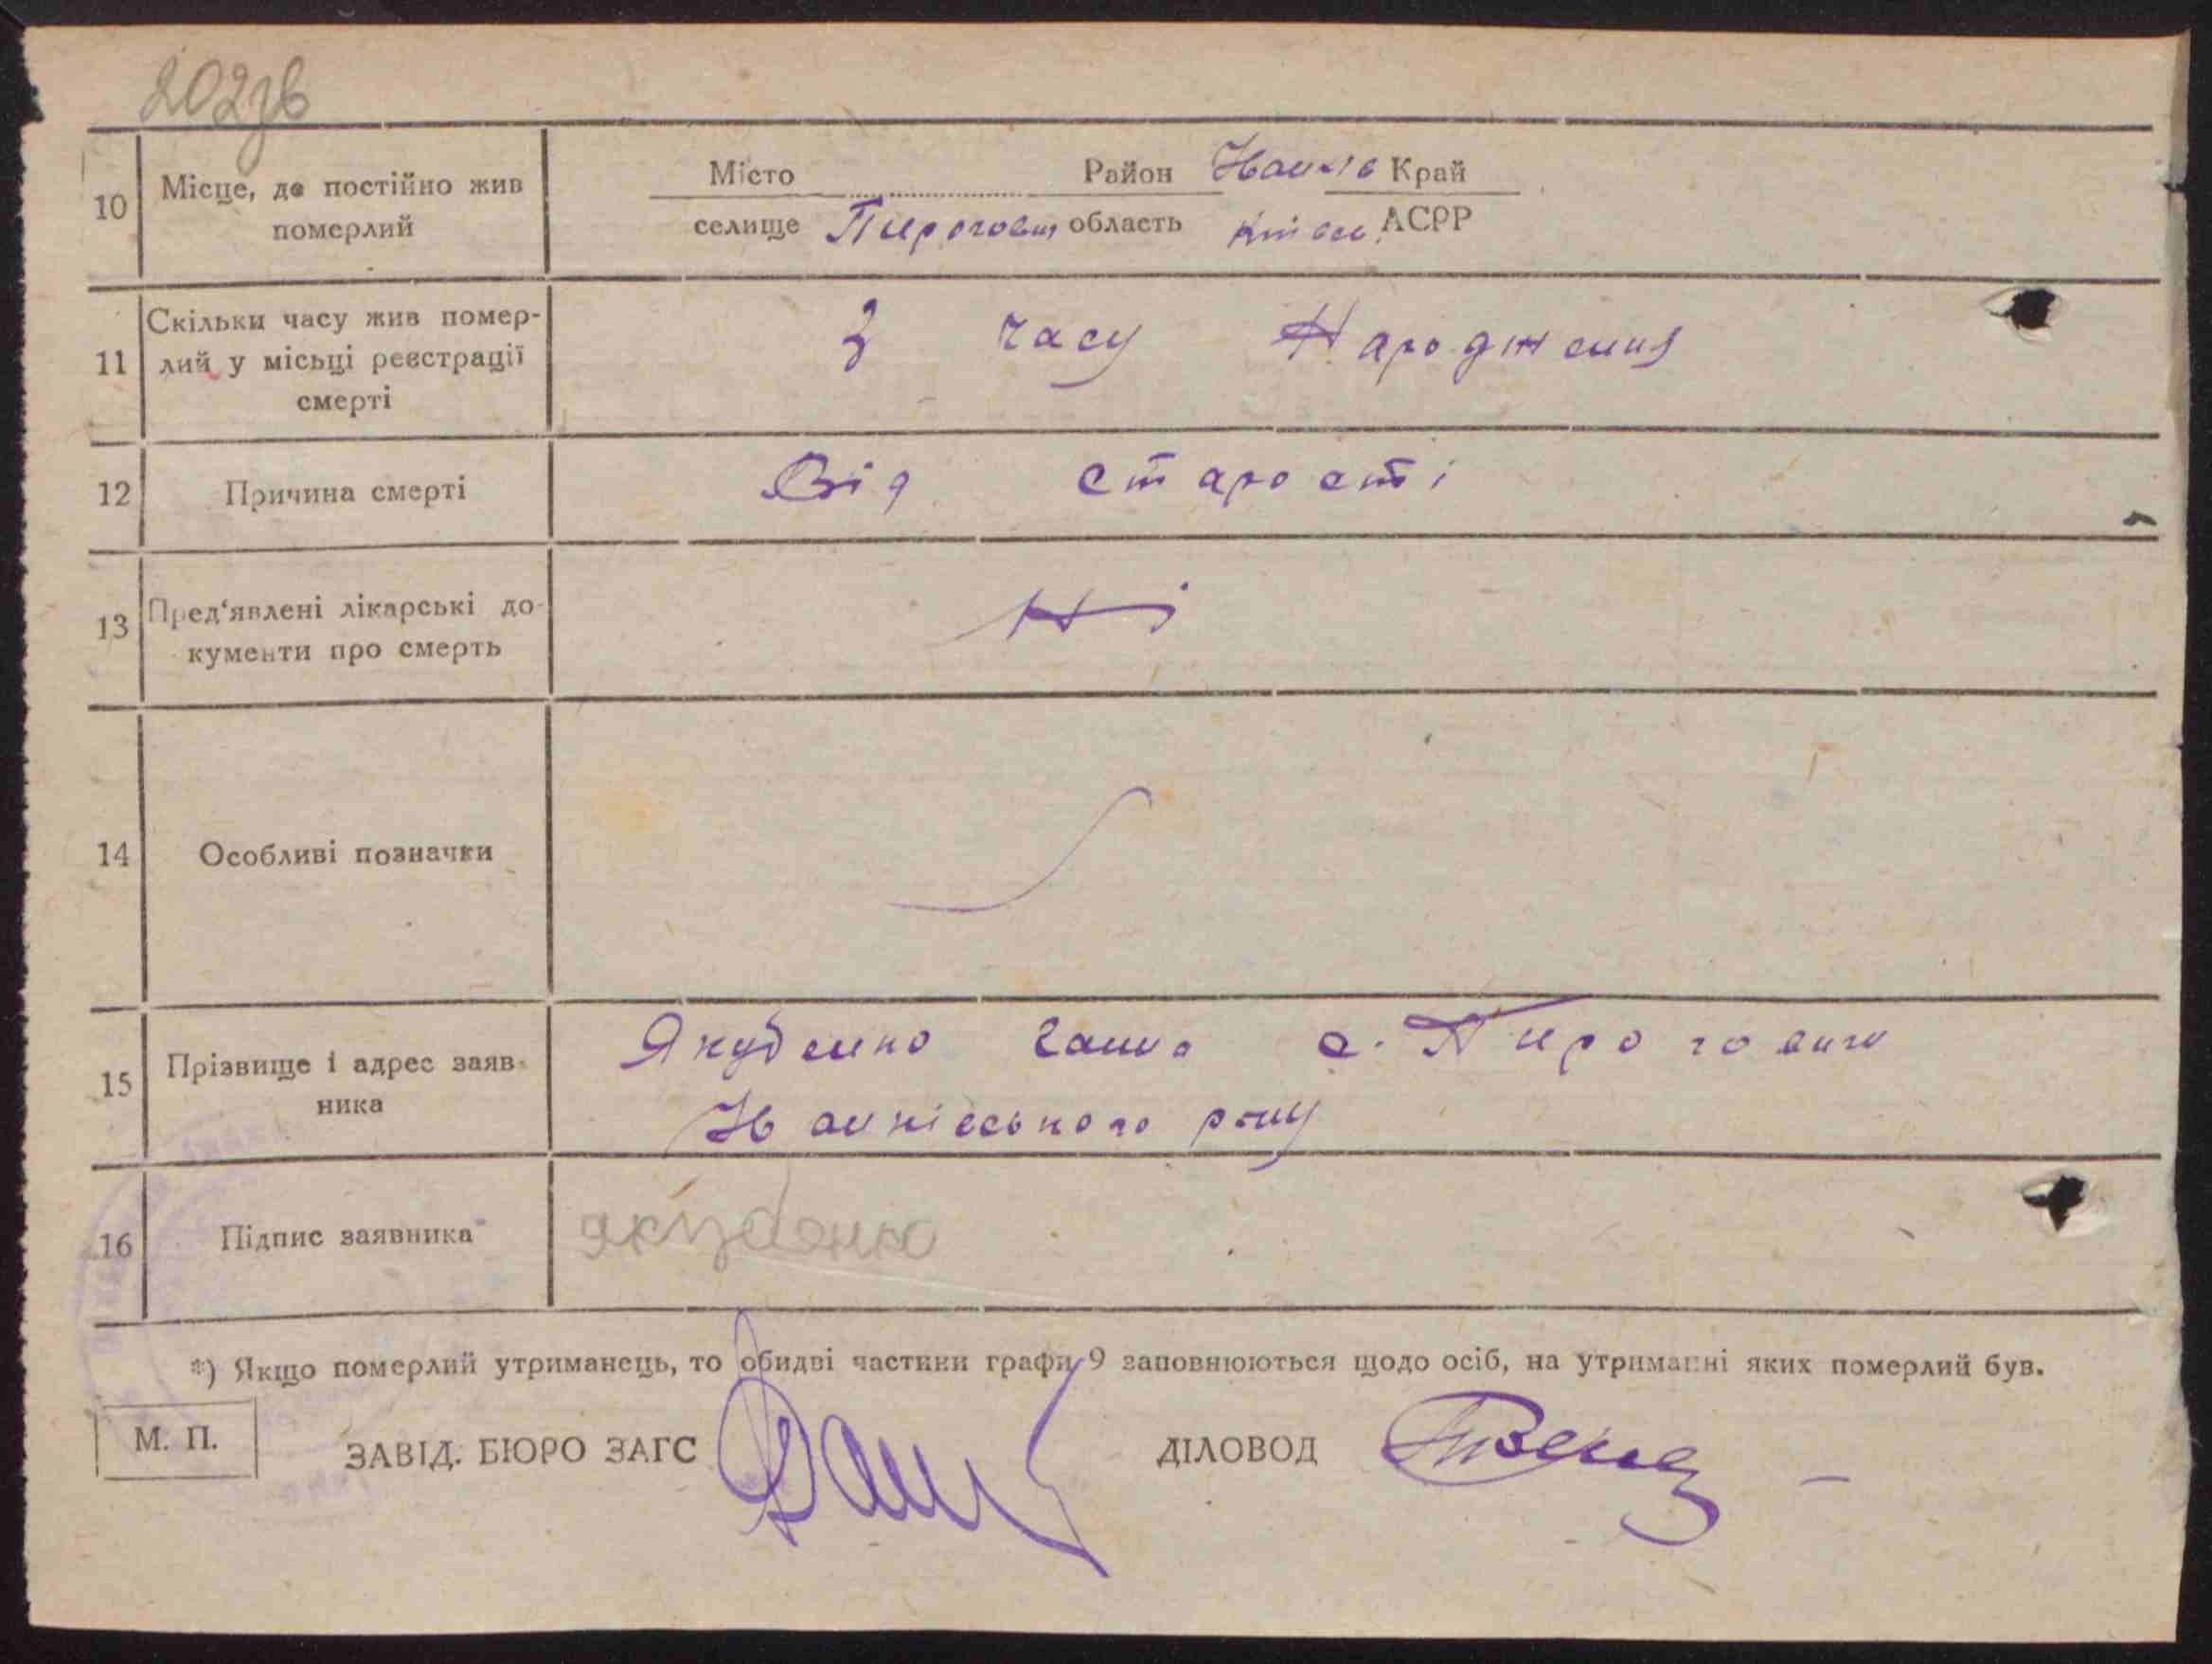 202зв
10 Місце, де постійно жив померлий
Місто Район Край
селище Пирогович область Київсь. АСРР
11 Скільки часу жив померлий у місьці реєстрації смерті
З часу Народження
12 Причина смерті
Від старості
13 Пред'явлені лікарські документи про смерть
Ні
14 Особливі позначки
15 Прізвище і адрес заявника
Якубенко Ганна с. Пироговичи
16 Підпис заявника
якубенко
*) Якщо померлий утриманець, то обидві частини графи 9 заповнюються щодо осіб, на утриманні яких померлий був.
М. П.
ЗАВІД. БЮРО ЗАГС
ДІЛОВОД